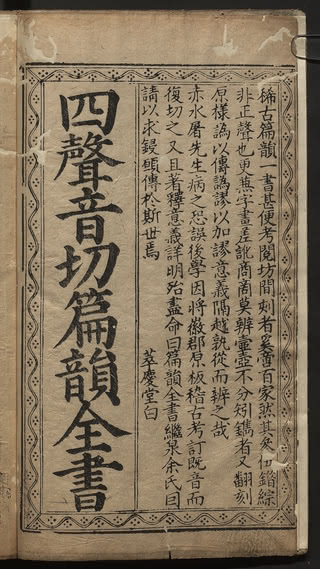 稀古篇韻一書甚便考閱坊間刻者奚啻百家然其矣伍錯綜
非正聲也更無字畫差訛商商莫辨壷壺不分矧鐫者又翻刻
原樣譌以傳譌謬以加謬意義隔越孰從而辨之哉
赤水屠先生病之恐誤後學因將徽郡原板稽古考訂既音而
復切之又且著釋意義詳明殆盡命曰篇韻全書繼泉余氏曰
請以求鋟碩傳於斯世焉
萃慶堂白
四聲音切篇韻全書